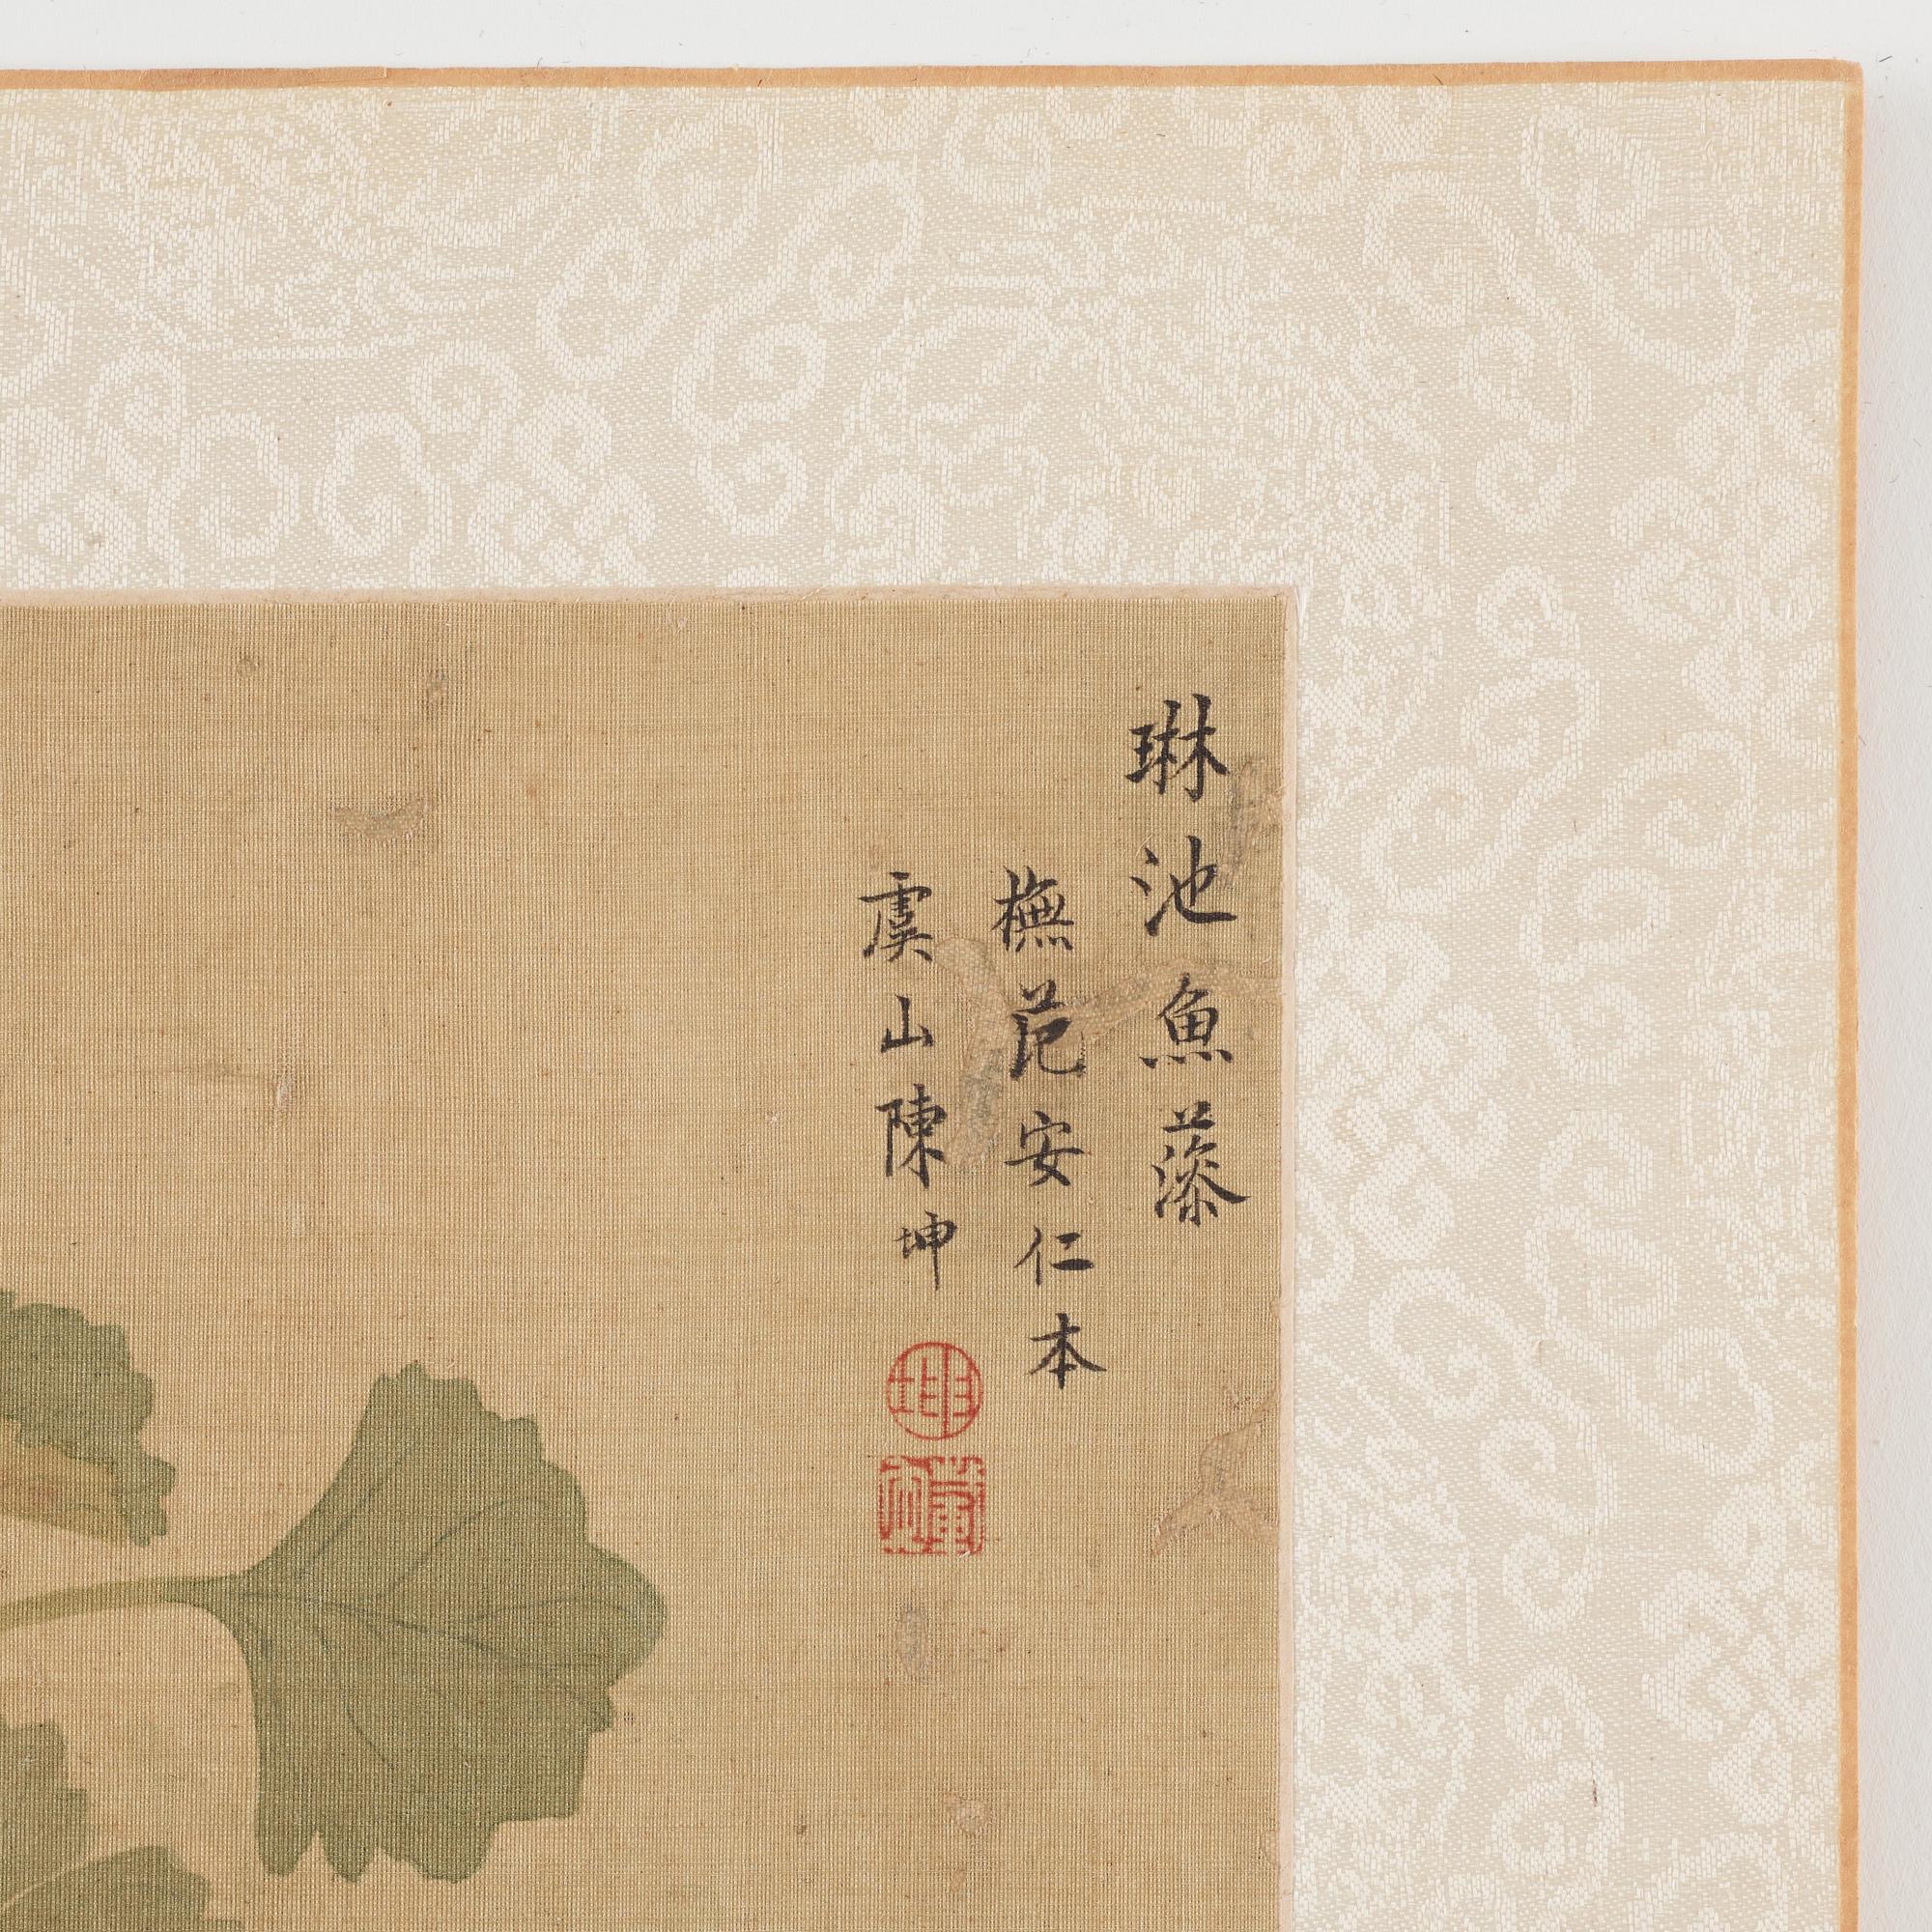 琳池魚藻
橅范安仁本
虞山陳坤
坤